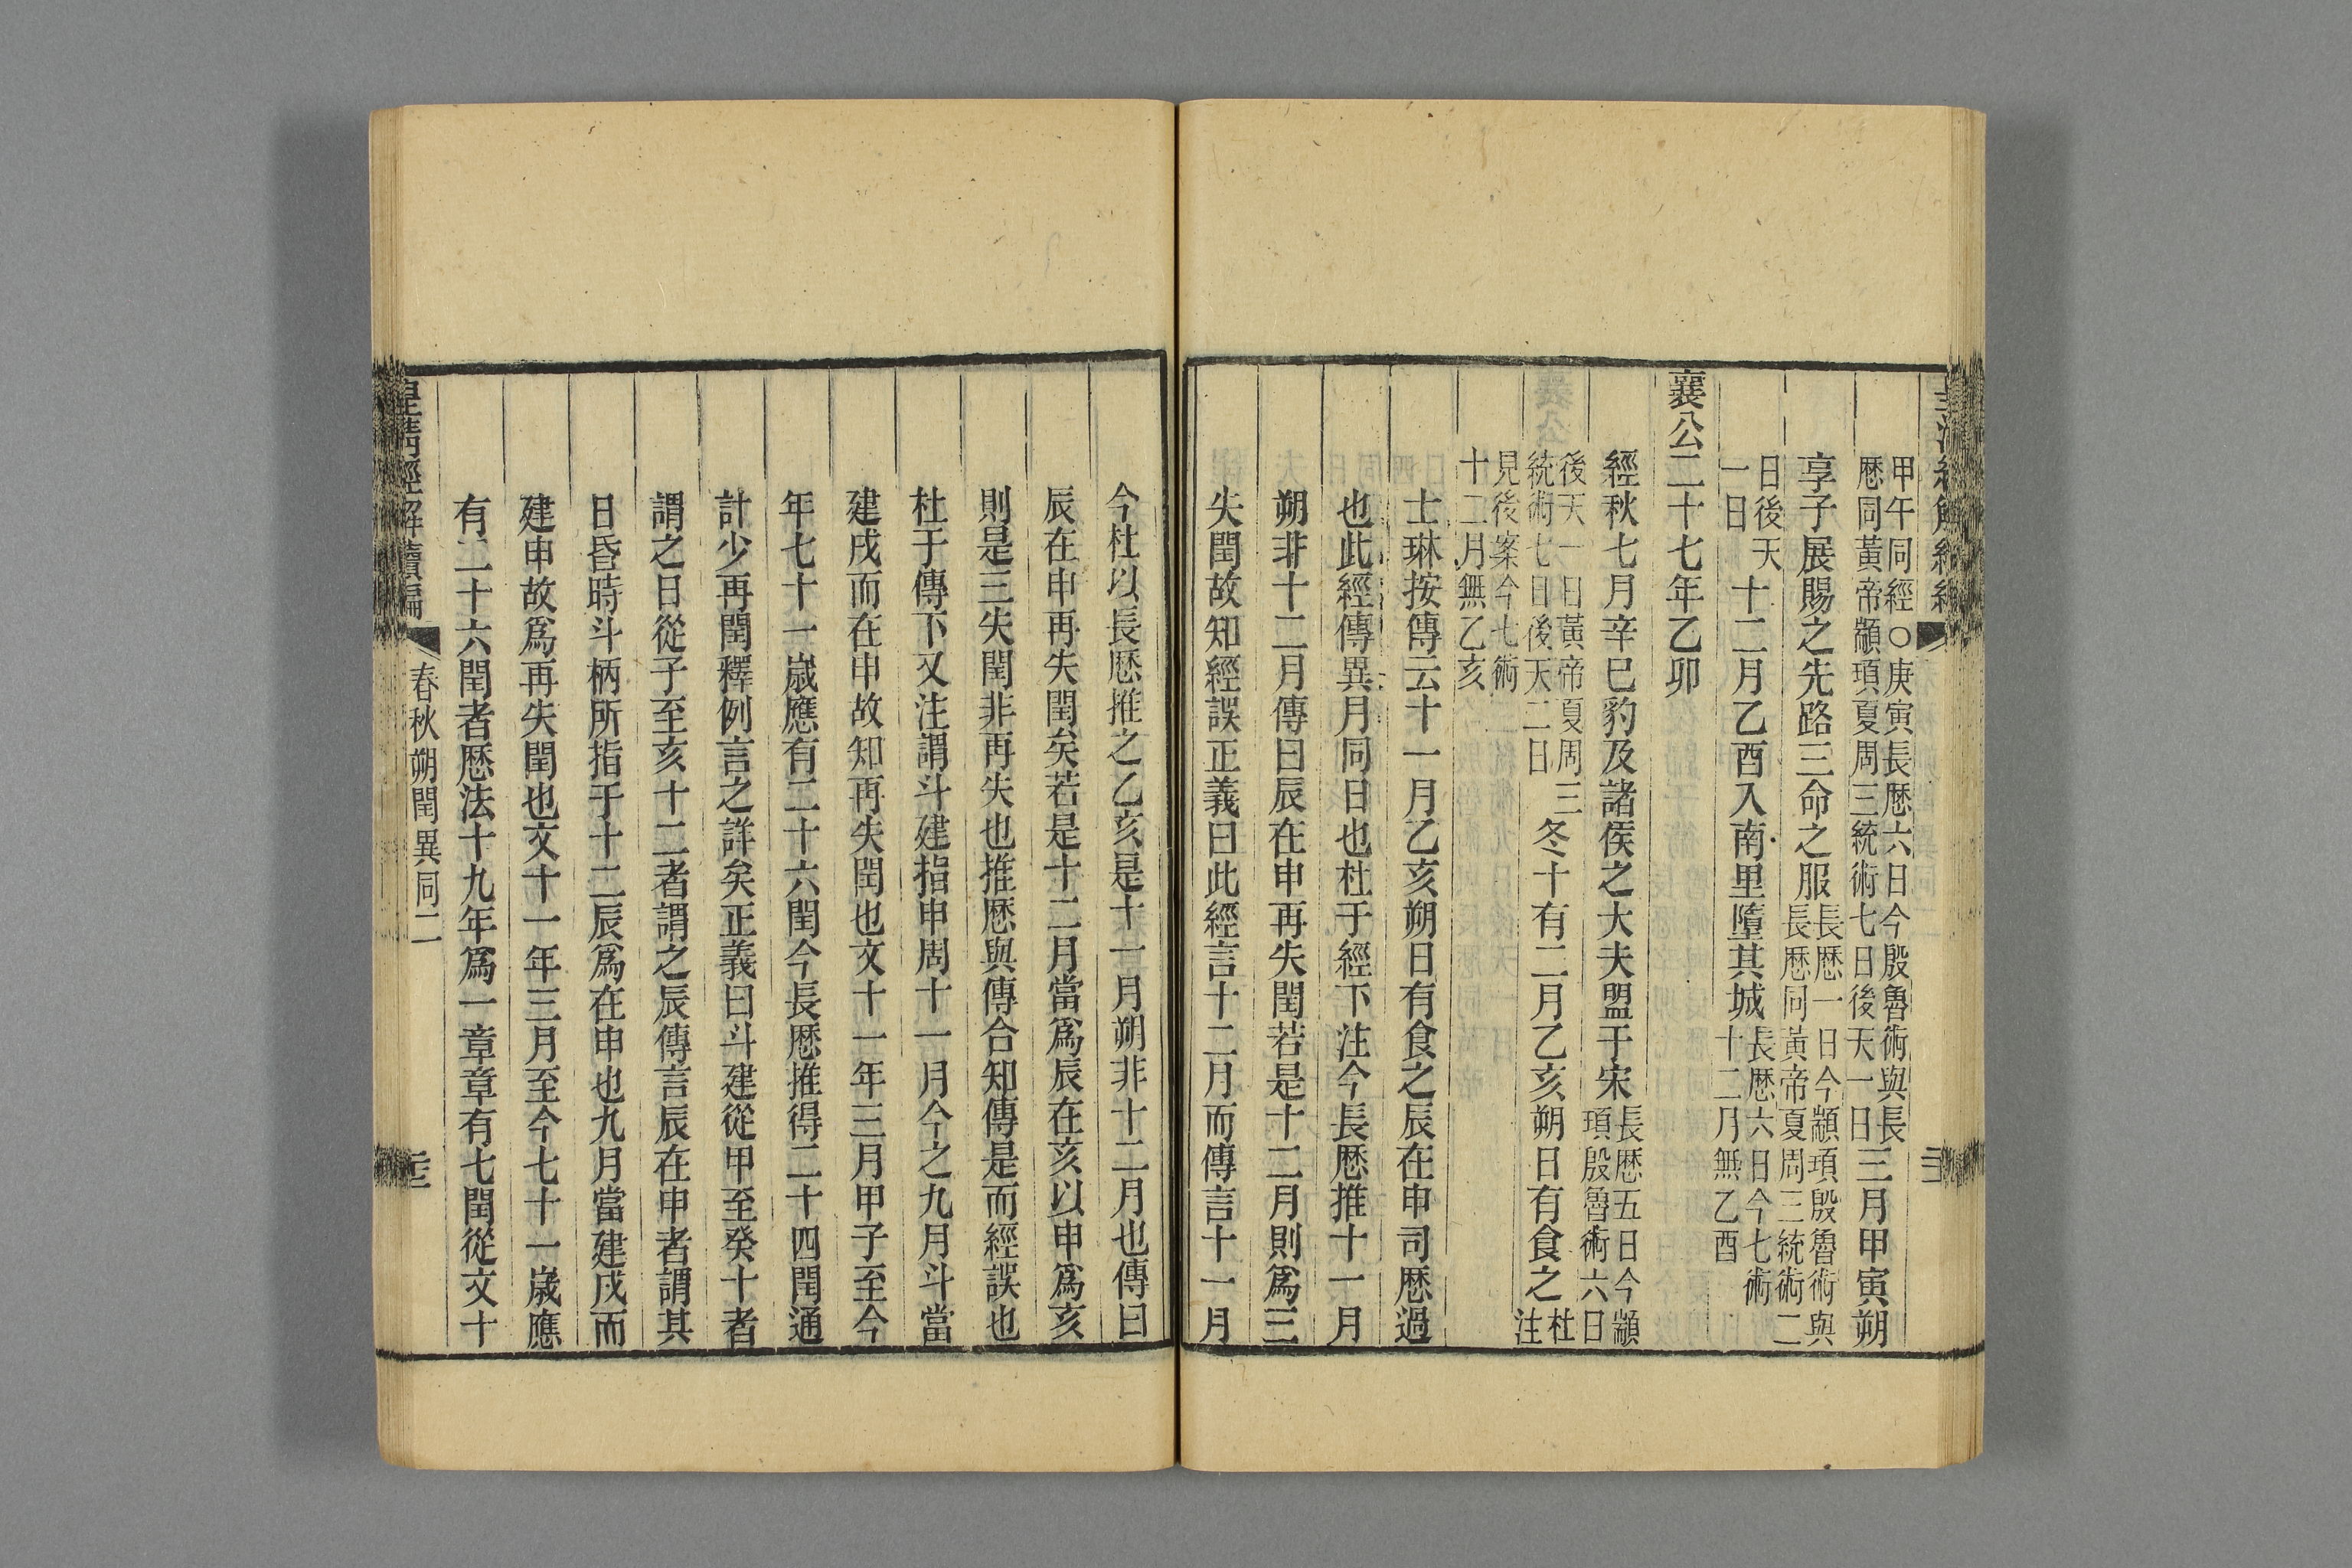 甲午同經○庚寅長厯六日今殷魯術與長厯同黃帝顓頊夏周三統術七日後天一日三月甲寅朔
享子展賜之先路三命之服長厯一日今顓頊殷魯術與長厯同黃帝夏周三統術二
日後天一日十二月乙酉入南里墮其城長厯六日今七術十二月無乙酉
襄公二十七年乙卯
經秋七月辛巳豹及諸侯之大夫盟于宋長厯五日今顓頊殷魯術六日
後天一日黃帝夏周三統術七日後天二日冬十有二月乙亥朔日有食之杜注
見後案今七術十二月無乙亥
士琳按傳云十一月乙亥朔日有食之辰在申司厯過
也此經傳異月同日也杜于經下注今長厯推十一月
朔非十二月傳曰辰在申再失閏若是十二月則爲三
失閏故知經誤正義曰此經言十二月而傳言十一月
今杜以長厯推之乙亥是十一月朔非十二月也傳曰
辰在申再失閏矣若是十二月當爲辰在亥以申爲亥
則是三失閏非再失也推厯與傳合知傳是而經誤也
杜于傳下又注謂斗建指申周十一月今之九月斗當
建戌而在申故知再失閏也文十一年三月甲子至今
年七十一歲應有二十六閏今長厯推得二十四閏通
計少再閏釋例言之詳矣正義曰斗建從甲至癸十者
謂之日從子至亥十二者謂之辰傳言辰在申者謂其
日昏時斗柄所指于十二辰爲在申也九月當建戌而
建申故爲再失閏也文十一年三月至今七十一歲應
有二十六閏者厯法十九年爲一章章有七閏從文十
皇清經解續編 春秋朔閏異同二